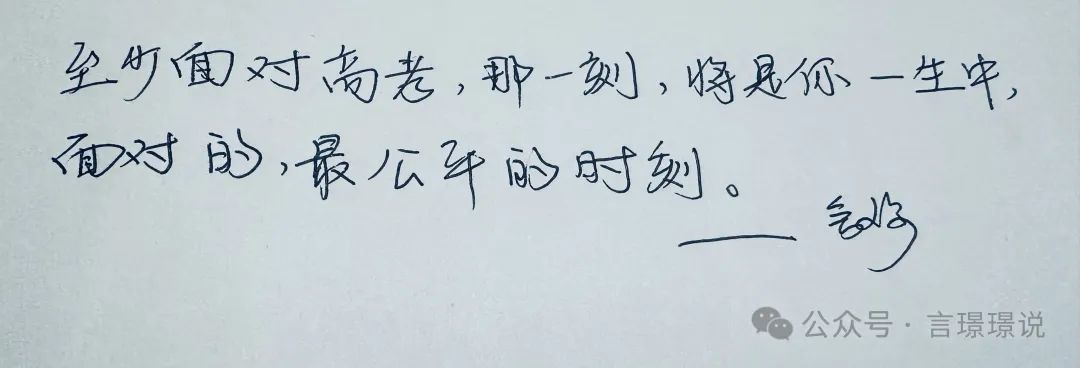 至少面对高考,那一刻,将是你一生中,
面对的,最公平的时刻。
——
公众号·言璟璟说